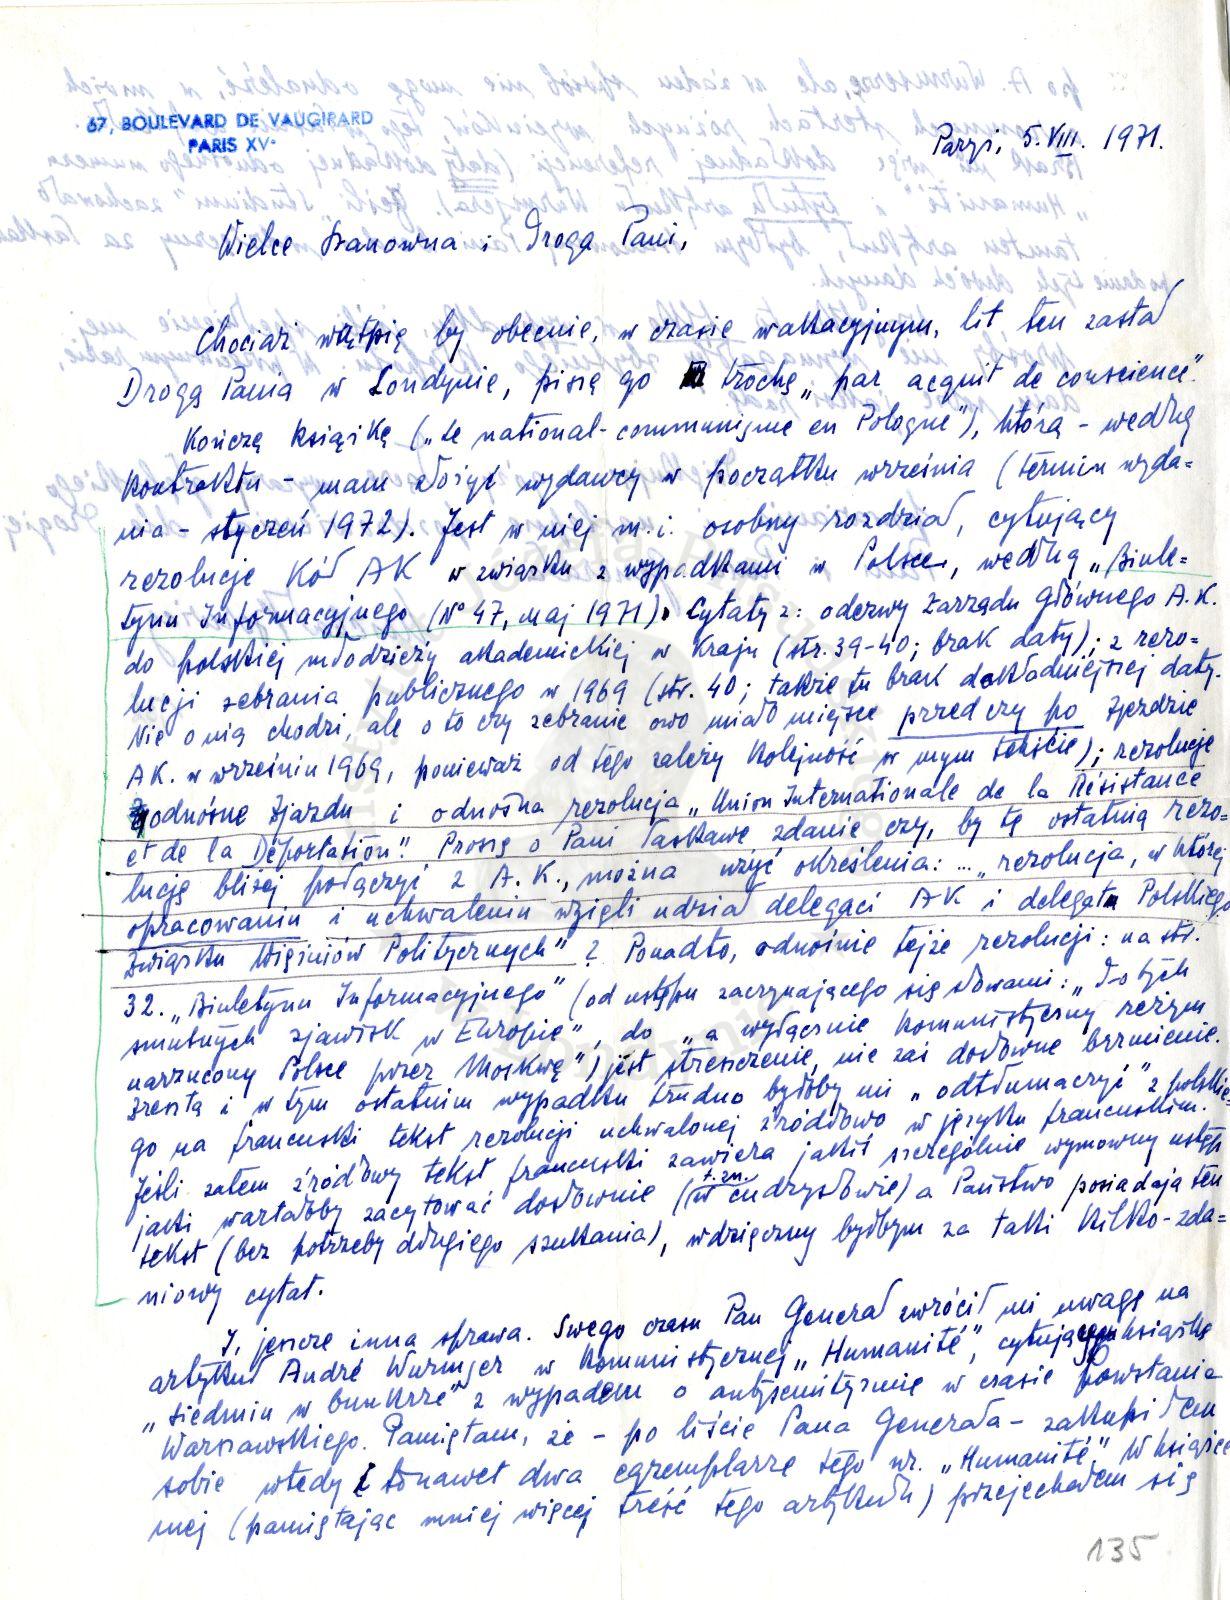 67, BOULEVARD DE VAUGIRARD
PARIS XVe
Paryż, 5.VIII. 1971.
Wielce Szanowna i Droga Pani,
Chociaż wątpię by obecnie, w czasie wakacyjnym, list ten zastał
Drogą Panią w Londynie, piszę go trochę „par acquit de conscience".
Kończę książkę („Le national-communisme en Pologne"), którą - według
kontraktu - mam złożyć wydawcy w początku września (termin wyda=
nia - styczeń 1972). Jest w niej m.i. osobny rozdział, cytujący
rezolucje Kół AK w związku z wypadkami w Polsce, według „Biule=
tynu Informacyjnego (N° 47, maj 1971). Cytaty z: odezwy Zarządu Głównego A.K.
do polskiej młodzieży akademickiej w Kraju (str. 39-40; brak daty); z rezo=
lucji zebrania publicznego w 1969 (str. 40; także tu brak dokładniejszej daty.
Nie o nią chodzi, ale o to czy zebranie owo miało miejsce przed czy po Zjeździe
AK. w wrześniu 1969, ponieważ od tego zależy kolejność w mym tekście); rezolucje
odnośne Zjazdu i odnośna rezolucja „Union Internationale de la Résistance
et de la Déportation". Proszę o Pani łaskawe zdanie czy, by tę ostatnią rezo=
lucję bliżej połączyć z A.K., można użyć określenia: ... „rezolucja, w której
opracowaniu i uchwaleniu wzięli udział delegaci AK i delegat Polskiego
Związku Więźniów Politycznych" ? Ponadto, odnośnie tejże rezolucji: na str.
32. „Biuletynu Informacyjnego" (od ustępu zaczynającego się słowami: „Do tych
smutnych zjawisk w Europie", do „a wyłącznie komunistyczny reżym
narzucony Polsce przez Moskwę") jest streszczenie, nie zaś dosłowne brzmienie.
Zresztą i w tym ostatnim wypadku trudno byłoby mi „odtłumaczyć" z polskie=
go na francuski tekst rezolucji uchwalonej źródłowo w języku francuskim.
Jeśli zatem źródłowy tekst francuski zawiera jakiś szczególnie wymowny ustęp
jaki wartałoby zacytować dosłownie (t.zn. w cudzysłowie) a Państwo posiadają ten
tekst (bez potrzeby długiego szukania), wdzięczny byłbym za taki kilko-zda=
niowy cytat.
I, jeszcze inna sprawa. Swego czasu Pan Generał zwrócił mi uwagę na
artykuł André Wurmser w komunistycznej „Humanité", cytującym książkę
„Siedmiu w bunkrze" z wypadem o antysemityzmie w czasie Powstania
Warszawskiego. Pamiętam, że - po liście Pana Generała - zakupiłem
sobie wtedy nawet dwa egzemplarze tego nr. „Humanité". W książce
mej (pamiętając mniej więcej treść tego artykułu) przejechałem się
135